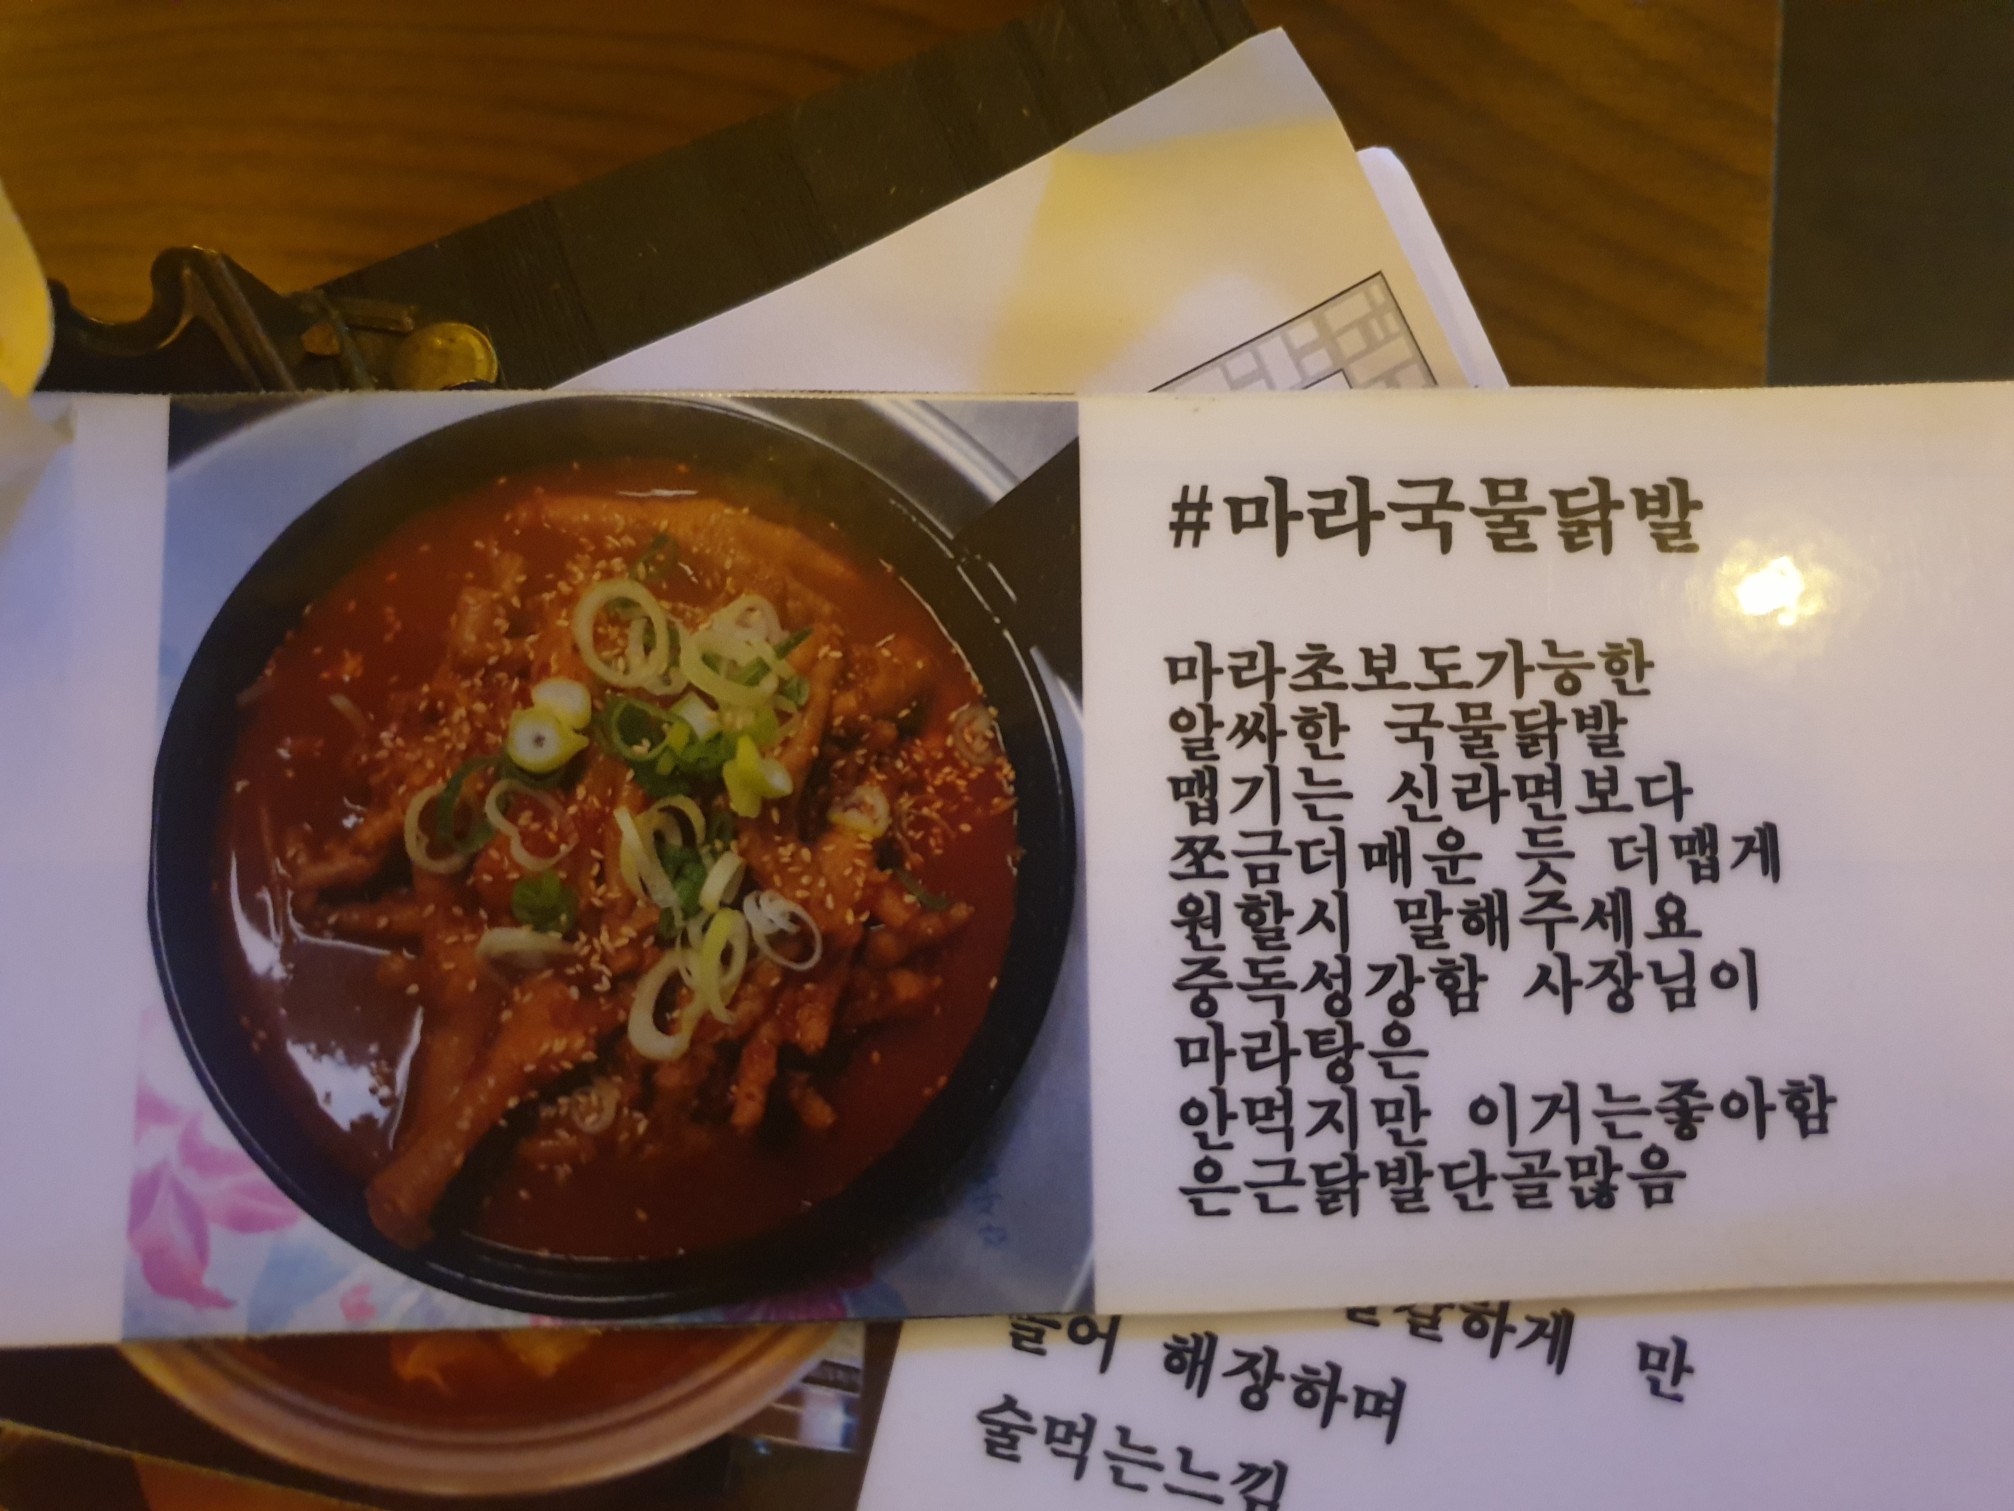 #마라국물닭발
마라초보도가능한
알싸한 국물닭발
맵기는 신라면보다
쪼금더매운 듯 더맵게
원할시 말해주세요
중독성강함 사장님이
마라탕은
안먹지만 이거는좋아함
은근닭발단골많음
만
들어 해장하며
술먹는느낌